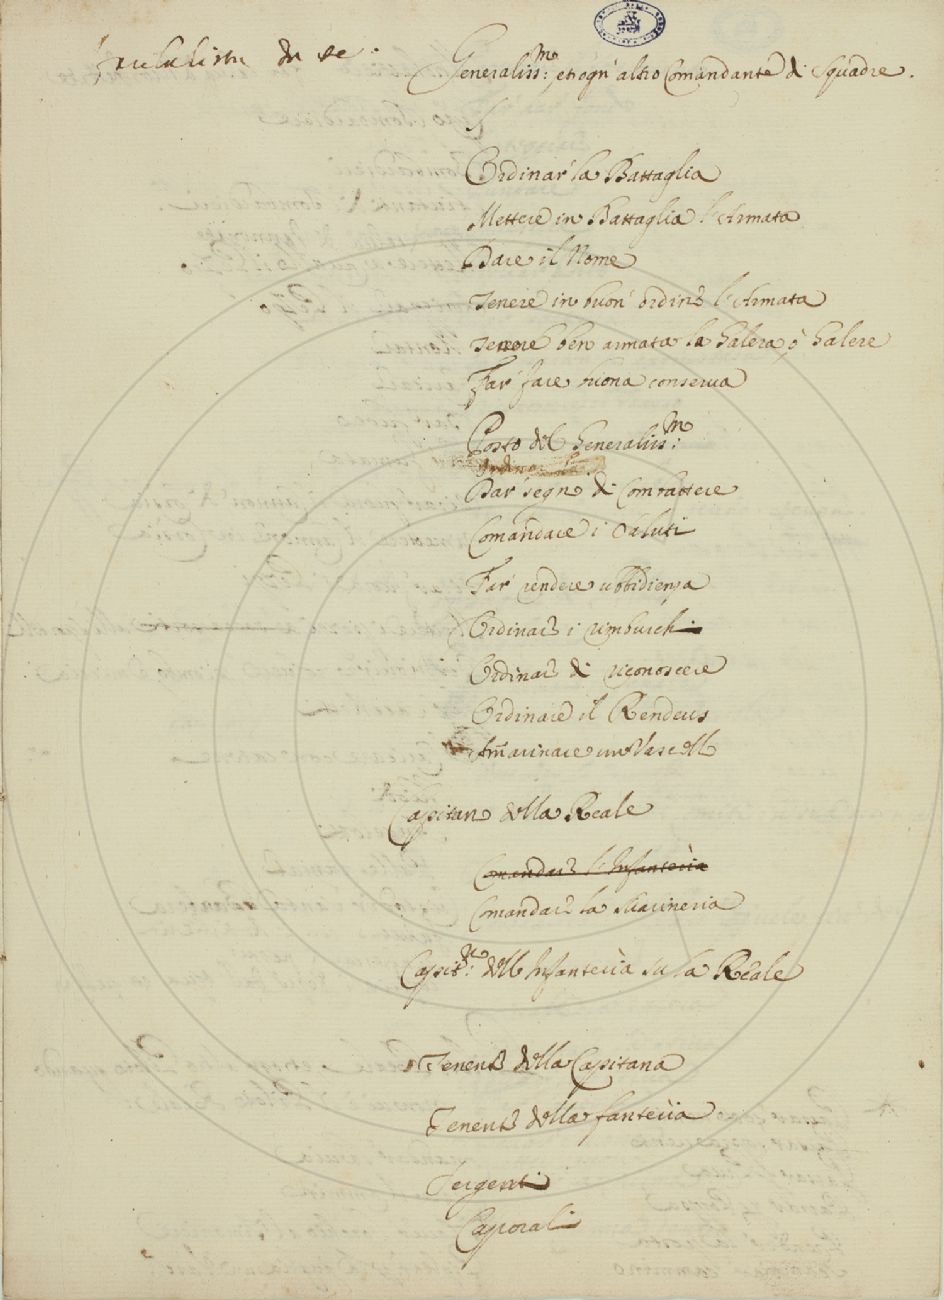 Generaliss:mo, et ogn' altro Comandante di Squadre.
Ordinar' la Battaglia
Mettere in Battaglia l'Armata
Dare il Nome
Tenere in buon' ordine l'Armata
Tenere ben armata la Galera, ò Galere
Far' fare buona conserva
Posto del Generaliss:mo
Dar' segno di Combattere
Comandare i Saluti
Far' rendere ubbidienza
Ordinare i rimburchi
Ordinare di riconoscere
Ordinare il Rendeus
Am̃arinare un Vascello
Capitano della Reale
Comandare l'Infanteria
Comandare la Marineria
Capit:no dell' Infanteria su la Reale
Tenente della Capitana
Tenente della fanteria
Sergenti
Caporali